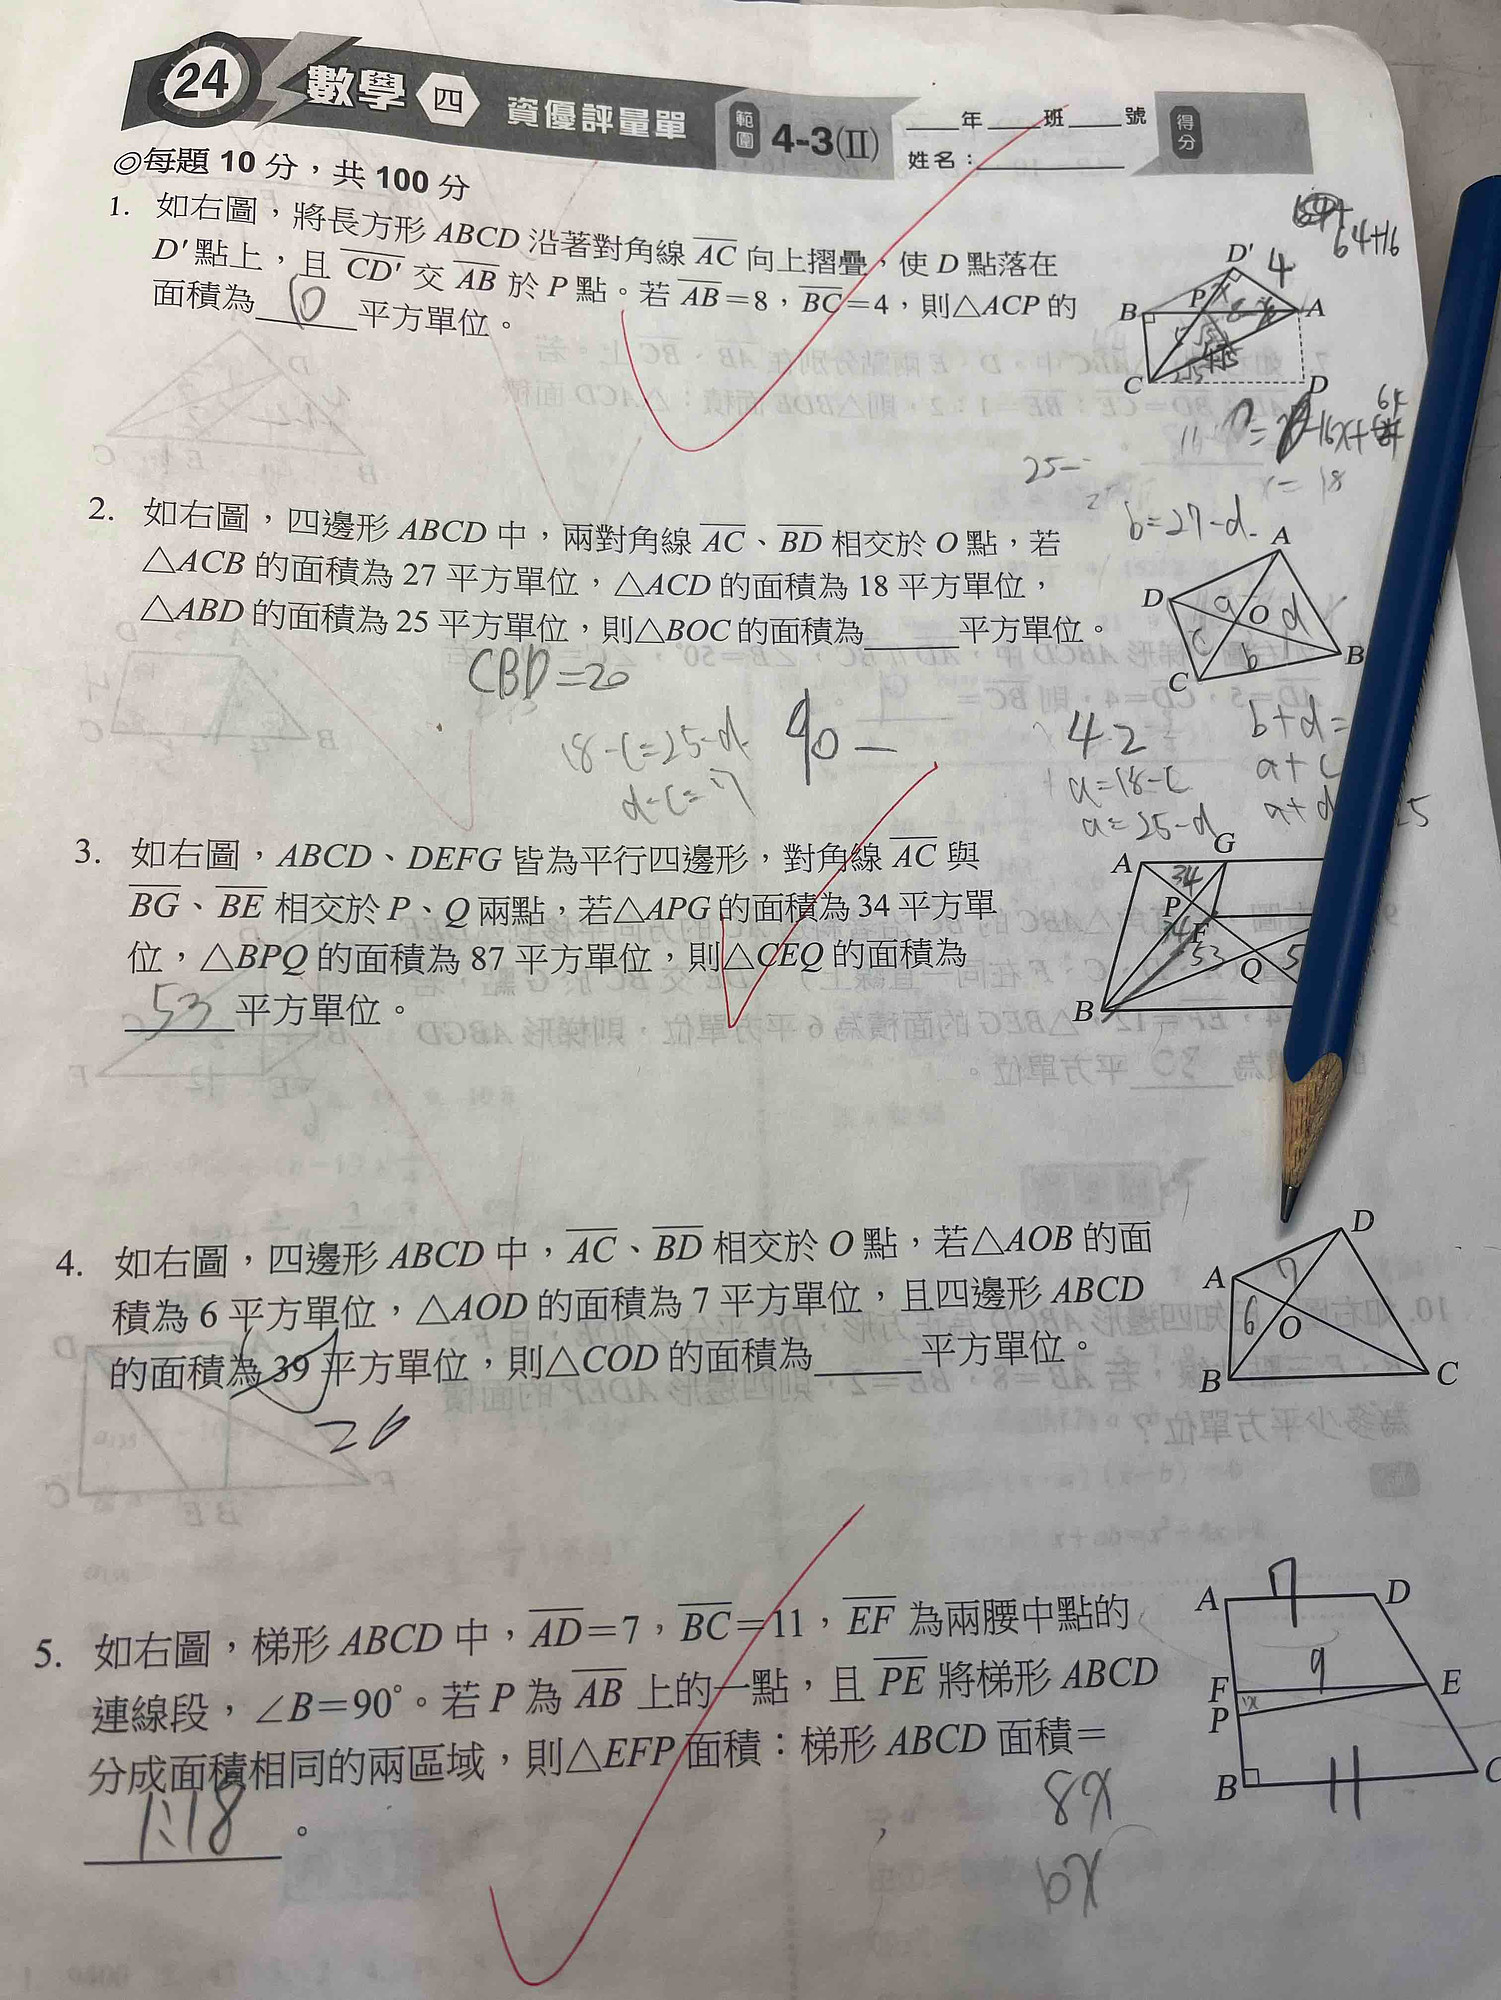 24 數學 四 資優評量單 範圍 4-3(II) ____年____班____號 得分
姓名：__________
◎每題 10 分，共 100 分
1. 如右圖，將長方形 ABCD 沿著對角線 AC 向上摺疊，使 D 點落在
D′點上，且 CD′ 交 AB 於 P 點。若 AB=8，BC=4，則△ACP 的
面積為 10 平方單位。
64+16
D′ 4
B P x A
C D
25-
x= 18
2. 如右圖，四邊形 ABCD 中，兩對角線 AC、BD 相交於 O 點，若
△ACB 的面積為 27 平方單位，△ACD 的面積為 18 平方單位，
△ABD 的面積為 25 平方單位，則△BOC 的面積為_____平方單位。
b=27-d
A
D a O d
c b B
C
CBD=20
18-c=25-d
d-c=7
90-
42
a=18-c
a=25-d
b+d=
a+c
a+d
3. 如右圖，ABCD、DEFG 皆為平行四邊形，對角線 AC 與
BG、BE 相交於 P、Q 兩點，若△APG 的面積為 34 平方單
位，△BPQ 的面積為 87 平方單位，則△CEQ 的面積為
53 平方單位。
A G
34
P
34 F
53 Q 5
B
4. 如右圖，四邊形 ABCD 中，AC、BD 相交於 O 點，若△AOB 的面
積為 6 平方單位，△AOD 的面積為 7 平方單位，且四邊形 ABCD
的面積為 39 平方單位，則△COD 的面積為_____平方單位。
26
D
A 7
6 O
B C
5. 如右圖，梯形 ABCD 中，AD=7，BC=11，EF 為兩腰中點的
連線段，∠B=90°。若 P 為 AB 上的一點，且 PE 將梯形 ABCD
分成面積相同的兩區域，則△EFP 面積：梯形 ABCD 面積=
1:18 。
8x
7
A D
9
F E
P x
B 11 C